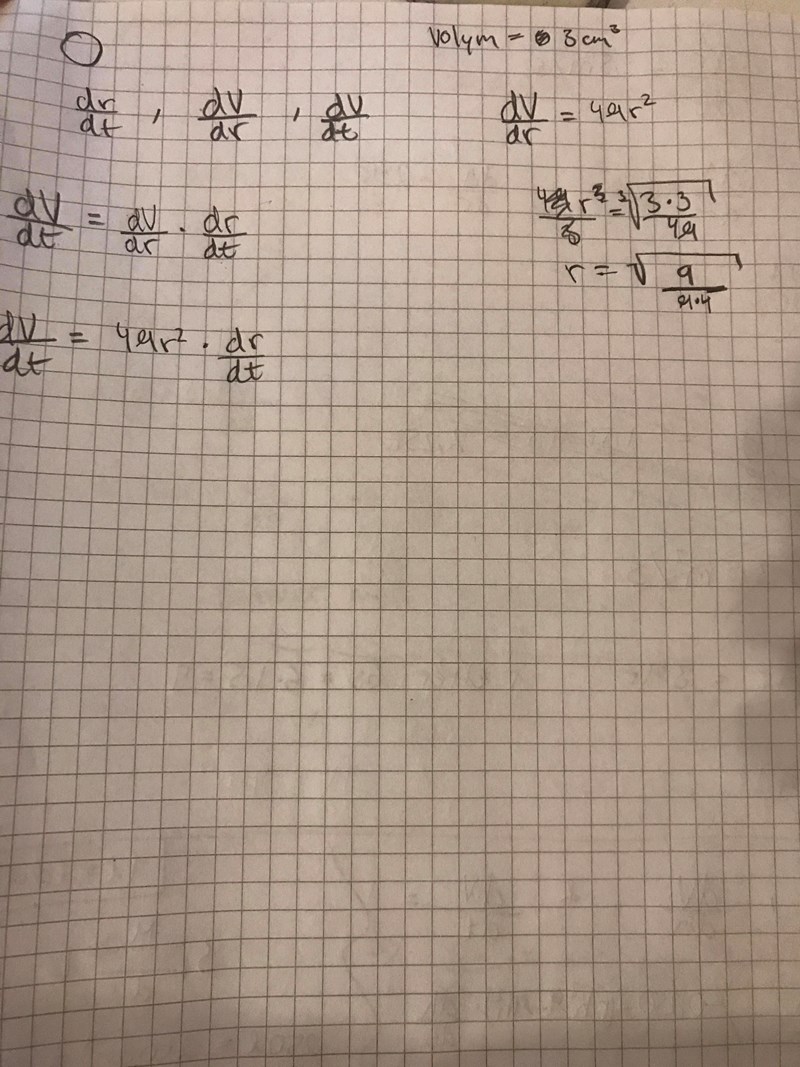 Volym = 3 cm³
dr/dt , dV/dr , dV/dt
dV/dr = 4πr²
dV/dt = dV/dr · dr/dt
4πr³/3 = ³√(3·3/4π)
r = √(9/π·4)
dV/dt = 4πr² · dr/dt